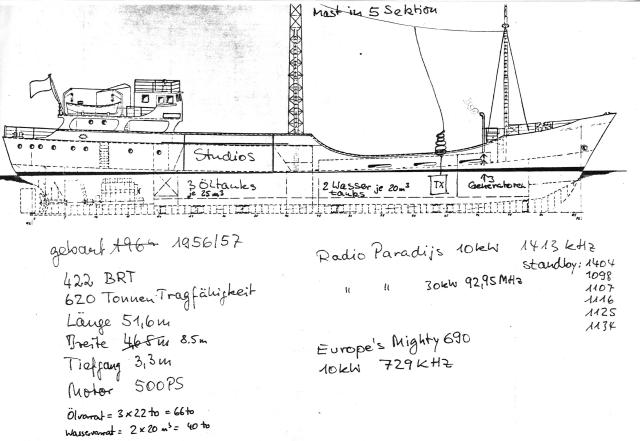 Mast in 5 Sektion
Studios
3 Öltanks
je 25 m³
2 Wasser je 20 m³
tanks
Tx
3
Generatoren
gebaut 1960 1956/57
422 BRT
620 Tonnen Tragfähigkeit
Länge 51,6 m
Breite 468m 8.5m
Tiefgang 3,3 m
Motor 500 PS
Ölvorrat = 3 x 22 to = 66 to
Wasservorrat = 2 x 20 m³ = 40 to
Radio Paradijs 10kW 1413 kHz
standby: 1404
1098
1107
1116
1125
1134
" " 30kW 92,95 MHz
Europe's Mighty 690
10kW 729 KHz